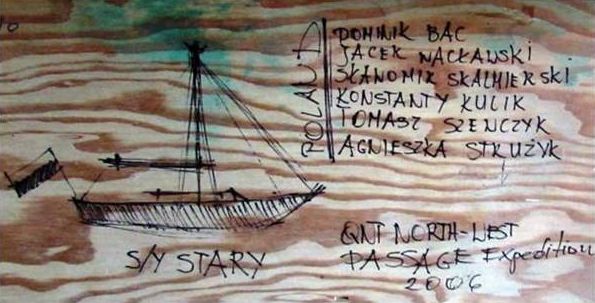 10
POLAND
DOMINIK BAC
JACEK WACŁAWSKI
SŁAWOMIR SKALMIERSKI
KONSTANTY KULIK
TOMASZ SZEWCZYK
AGNIESZKA STRUŻYK
S/Y STARY
QNT NORTH-WEST
PASSAGE Expedition
2006